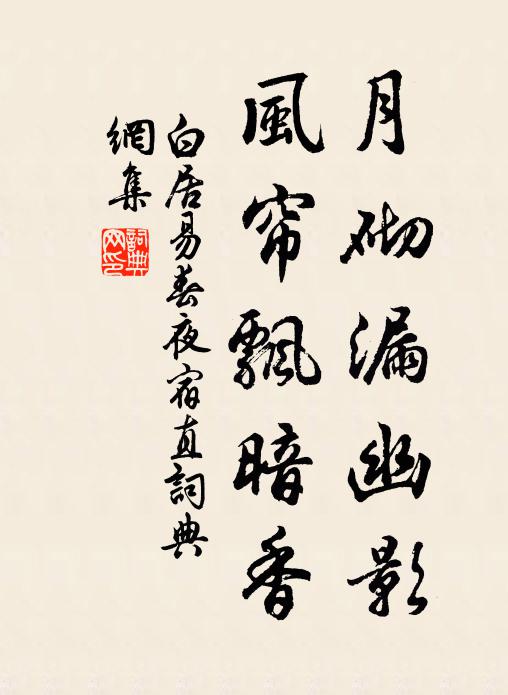 月砌漏幽影
風帘飄暗香
白居易春夜宿直詞典
網集
詞典
网印